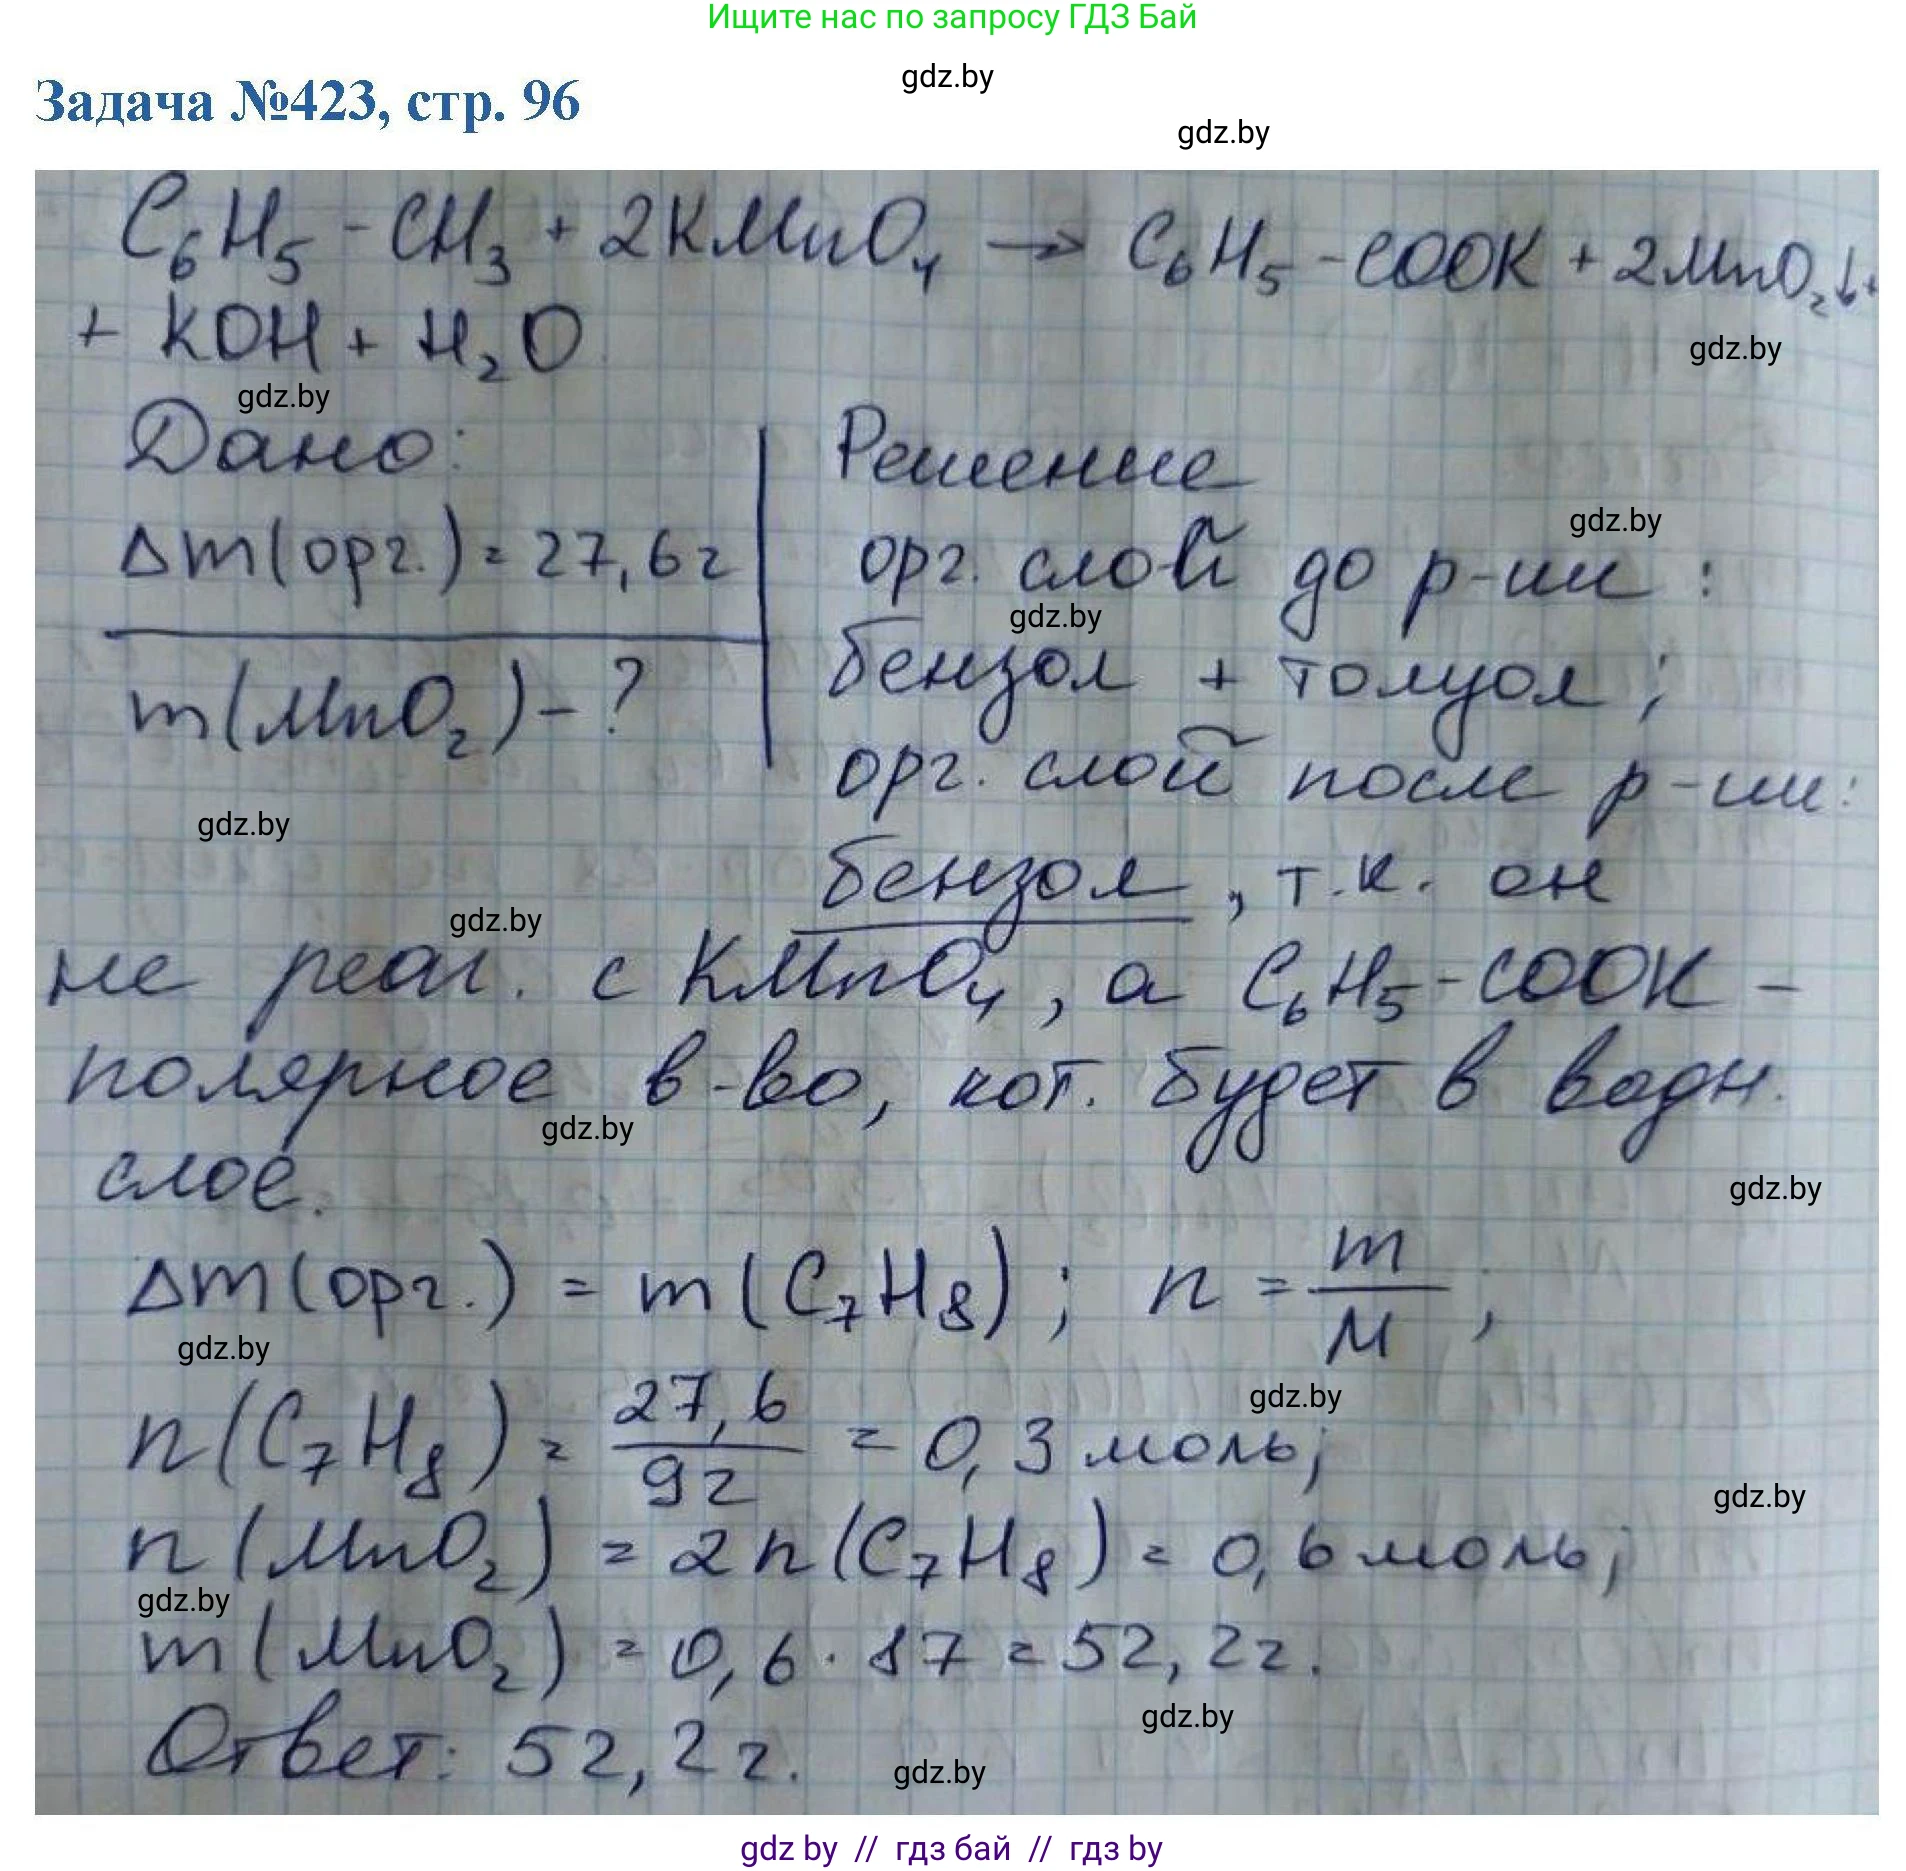 Ищите нас по запросу ГДЗ Бай
gdz.by
Задача №423, стр. 96
gdz.by
C₆H₅-CH₃ + 2KMnO₄ → C₆H₅-COOK + 2MnO₂↓+
+ KOH + H₂O
gdz.by
gdz.by
Дано:
Δm(орг.) = 27,6г
m(MnO₂) - ?
Решение
gdz.by
орг. слой до р-ии :
gdz.by
бензол + толуол ;
орг. слой после р-ии:
gdz.by
бензол, т.к. он
gdz.by
не реаг. с KMnO₄, а C₆H₅-COOK -
полярное в-во, кот. будет в водн.
gdz.by
слое.
gdz.by
Δm(орг.) = m(C₇H₈) ; n = m/M ;
gdz.by
gdz.by
n(C₇H₈) = 27,6/92 = 0,3 моль;
gdz.by
n(MnO₂) = 2n(C₇H₈) = 0,6 моль;
gdz.by
m(MnO₂) = 0,6 · 87 = 52,2г.
gdz.by
Ответ: 52,2г.
gdz.by
gdz by // гдз бай // гдз by